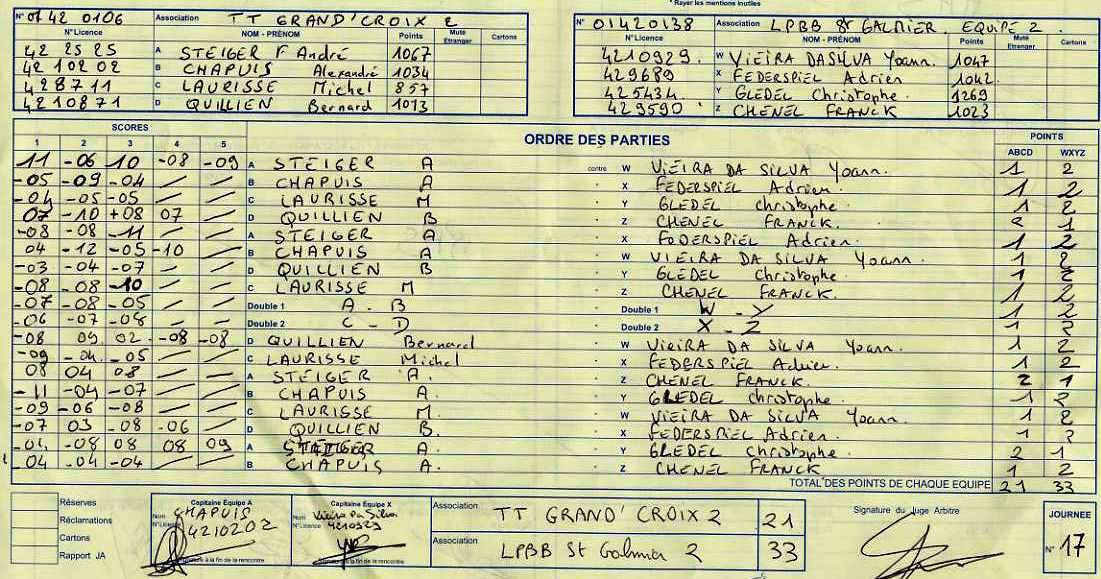 * Rayer les mentions inutiles
N° 01 42 0106 Association TT GRAND'CROIX 2
N°Licence NOM - PRÉNOM Points Muté Etranger Cartons
42 25 25 A STEIGER F André 1067
42 102 02 B CHAPUIS Alexandré 1034
428711 C LAURISSE Michel 857
4210871 D QUILLIEN Bernard 1013
N° 01420138 Association LPBB St GALMIER EQUIPE 2
N°Licence NOM - PRÉNOM Points Muté Etranger Cartons
4210929. W VIEIRA DASILVA Yoann. 1047
429689 X FEDERSPIEL Adrien. 1042.
425434. Y GLEDEL Christophe. 1269
429590 Z CHENEL FRANCK. 1023
SCORES ORDRE DES PARTIES POINTS
1 2 3 4 5 ABCD WXYZ
11 -06 10 -08 -09 A STEIGER A contre W VIEIRA DA SILVA Yoann. 1 2
-05 -09 -04 / / B CHAPUIS A X FEDERSPIEL Adrien. 1 2
-04 -05 -05 / / C LAURISSE M Y GLEDEL christophe. 1 2
07 -10 +08 07 / D QUILLIEN B Z CHENEL FRANCK. 2 1
-08 -08 -11 / / A STEIGER A X FODERSPIEL Adrien. 1 2
04 -12 -05 -10 / B CHAPUIS A W VIEIRA DA SILVA Yoann. 1 2
-03 -04 -07 / / D QUILLIEN B Y GLEDEL Christophe. 1 2
-08 -08 -10 / / C LAURISSE M Z CHENEL FRANCK. 1 2
-07 -08 -05 / / Double 1 A . B Double 1 W - Y 1 2
-06 -07 -08 / / Double 2 C - D Double 2 X - Z 1 2
-08 09. 02. -08 -08 D QUILLIEN Bernard W VIEIRA DA SILVA Yoann. 1 2
-09 -04. -05 / / C LAURISSE Michel X FEDERSPIEL Adrien. 1 2
08 04 08 / / A STEIGER A. Z CHENEL FRANCK. 2 1
-11 -04 -07 / / B CHAPUIS A. Y GLEDEL christophe. 1 2
-09 -06 -08 / / C LAURISSE M. W VIEIRA DA SILVA Yoann. 1 2
-07 03 -08 -06 / D QUILLIEN B. X FEDERSPIEL Adrien. 1 2
-08 08 08 09 A STEIGER A. Y GLEDEL Christophe. 2 1
-04 -04 -04 / / B CHAPUIS A. Z CHENEL FRANCK 1 2
TOTAL DES POINTS DE CHAQUE EQUIPE 21 33
Réserves
Réclamations
Cartons
Rapport JA
Capitaine Equipe A
Nom CHAPUIS
N°Licence 4210202
Signature à la fin de la rencontre
Capitaine Equipe X
Nom Vieira Da Silva
N°Licence 4210929
Signature à la fin de la rencontre
Association TT GRAND'CROIX 2 21
Association LPBB St Galmier 2 33
Signature du Juge Arbitre
JOURNEE
N° 17